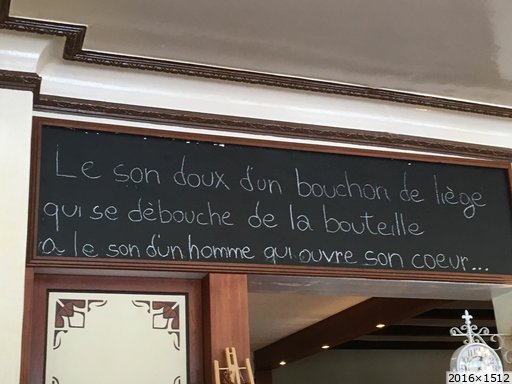 Le son doux d'un bouchon de liège
qui se dèbouche de la bouteille
a le son d'un homme qui ouvre son coeur...